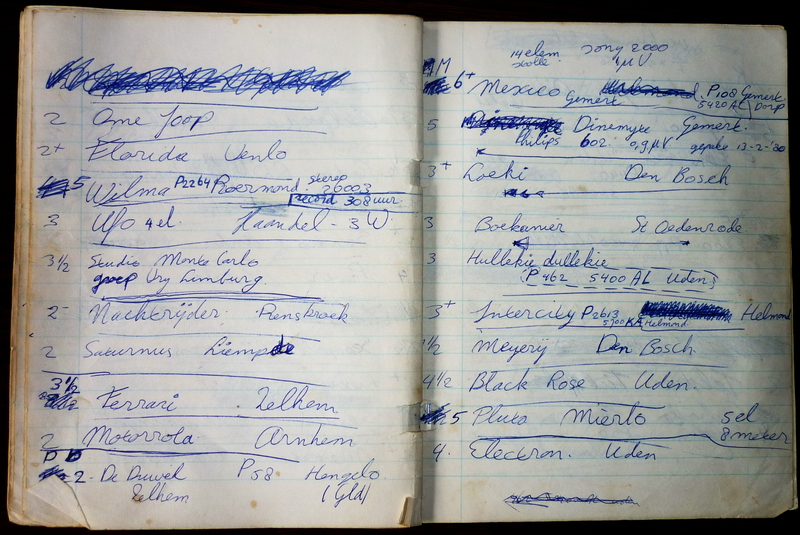 2 Ome Joop
2+ Florida Venlo
5 Wilma P2264 Roermond stereo 26003
record 308 uur
3 Ufo 4 el. Handel - 3 W
3 1/2 Studio Monte Carlo
groep Vry Limburg
2- Nachtrijder Rensbroek
2 Saturnus Liempde
3 1/2
Ferrari Zelhem
2 Motorrola Arnhem
2- De Duvel P58 Hengelo
Zelhem (Gld)
14 elem sony 2000
1µV
M
6+ Mexico Gemert P108 Gemert
5420 AL Dorp
5 Dinemyte Gemert.
Philips 602 0,9µV 12-2-'80
3+ Loeki Den Bosch
3 Boekanier St Oedenrode
3 Hullekie dullekie
P 462 5400 AL Uden
3+ Intercity P2613 Helmond
5700 KA Helmond
1/2 Meyerij Den Bosch
4 1/2 Black Rose Uden.
5 Pluto Mierlo 5el
8 meter
4. Electron. Uden